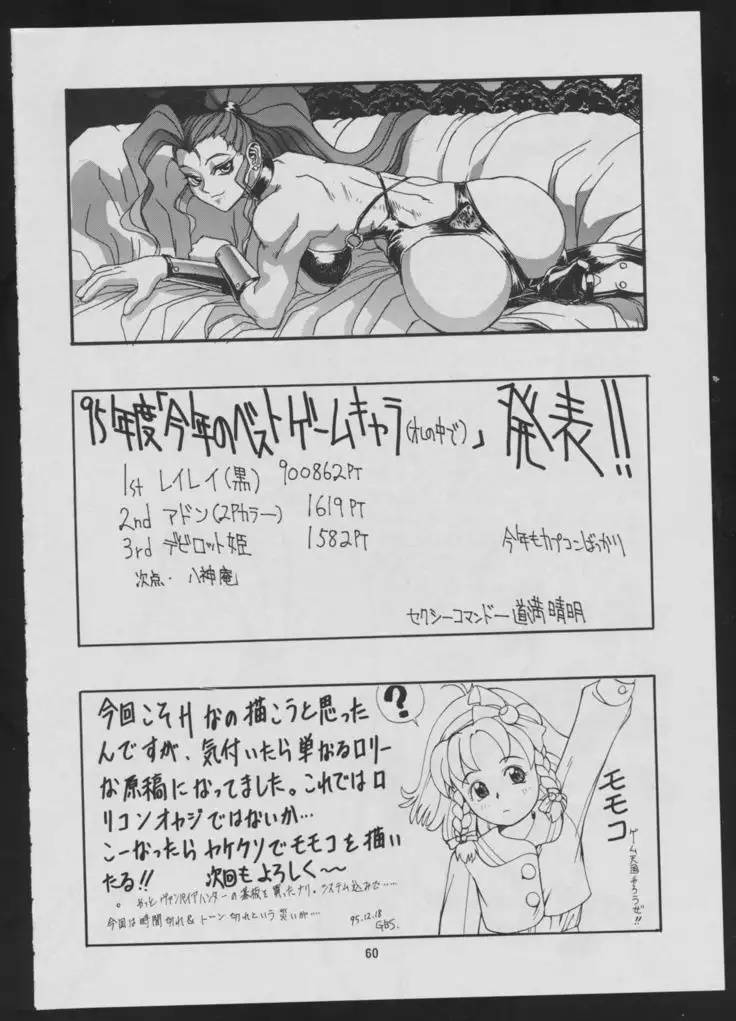 95年度「今年のベストゲームキャラ(オレの中で)」発表!!
1st レイレイ(黒) 900862PT
2nd アドン(2Pカラー) 1619PT
3rd デビロット姫 1582PT
今年もカプコンばっかり
次点・八神庵
セクシーコマンドー道満晴明
?
今回こそHなの描こうと思った
んですが、気付いたら単なるロリー
な原稿になってました。これではロ
リコンオヤジではないか…
こーなったらヤケクソでモモコを描い
たる!! 次回もよろしく〜
。やっとヴァンパイアハンターの基板を買ったナリ。システム込みで……
今回は時間切れ&トーン切れという災いが…
95.12.18
GBS.
モモコ
ゲーム天国やろうぜ!!
60